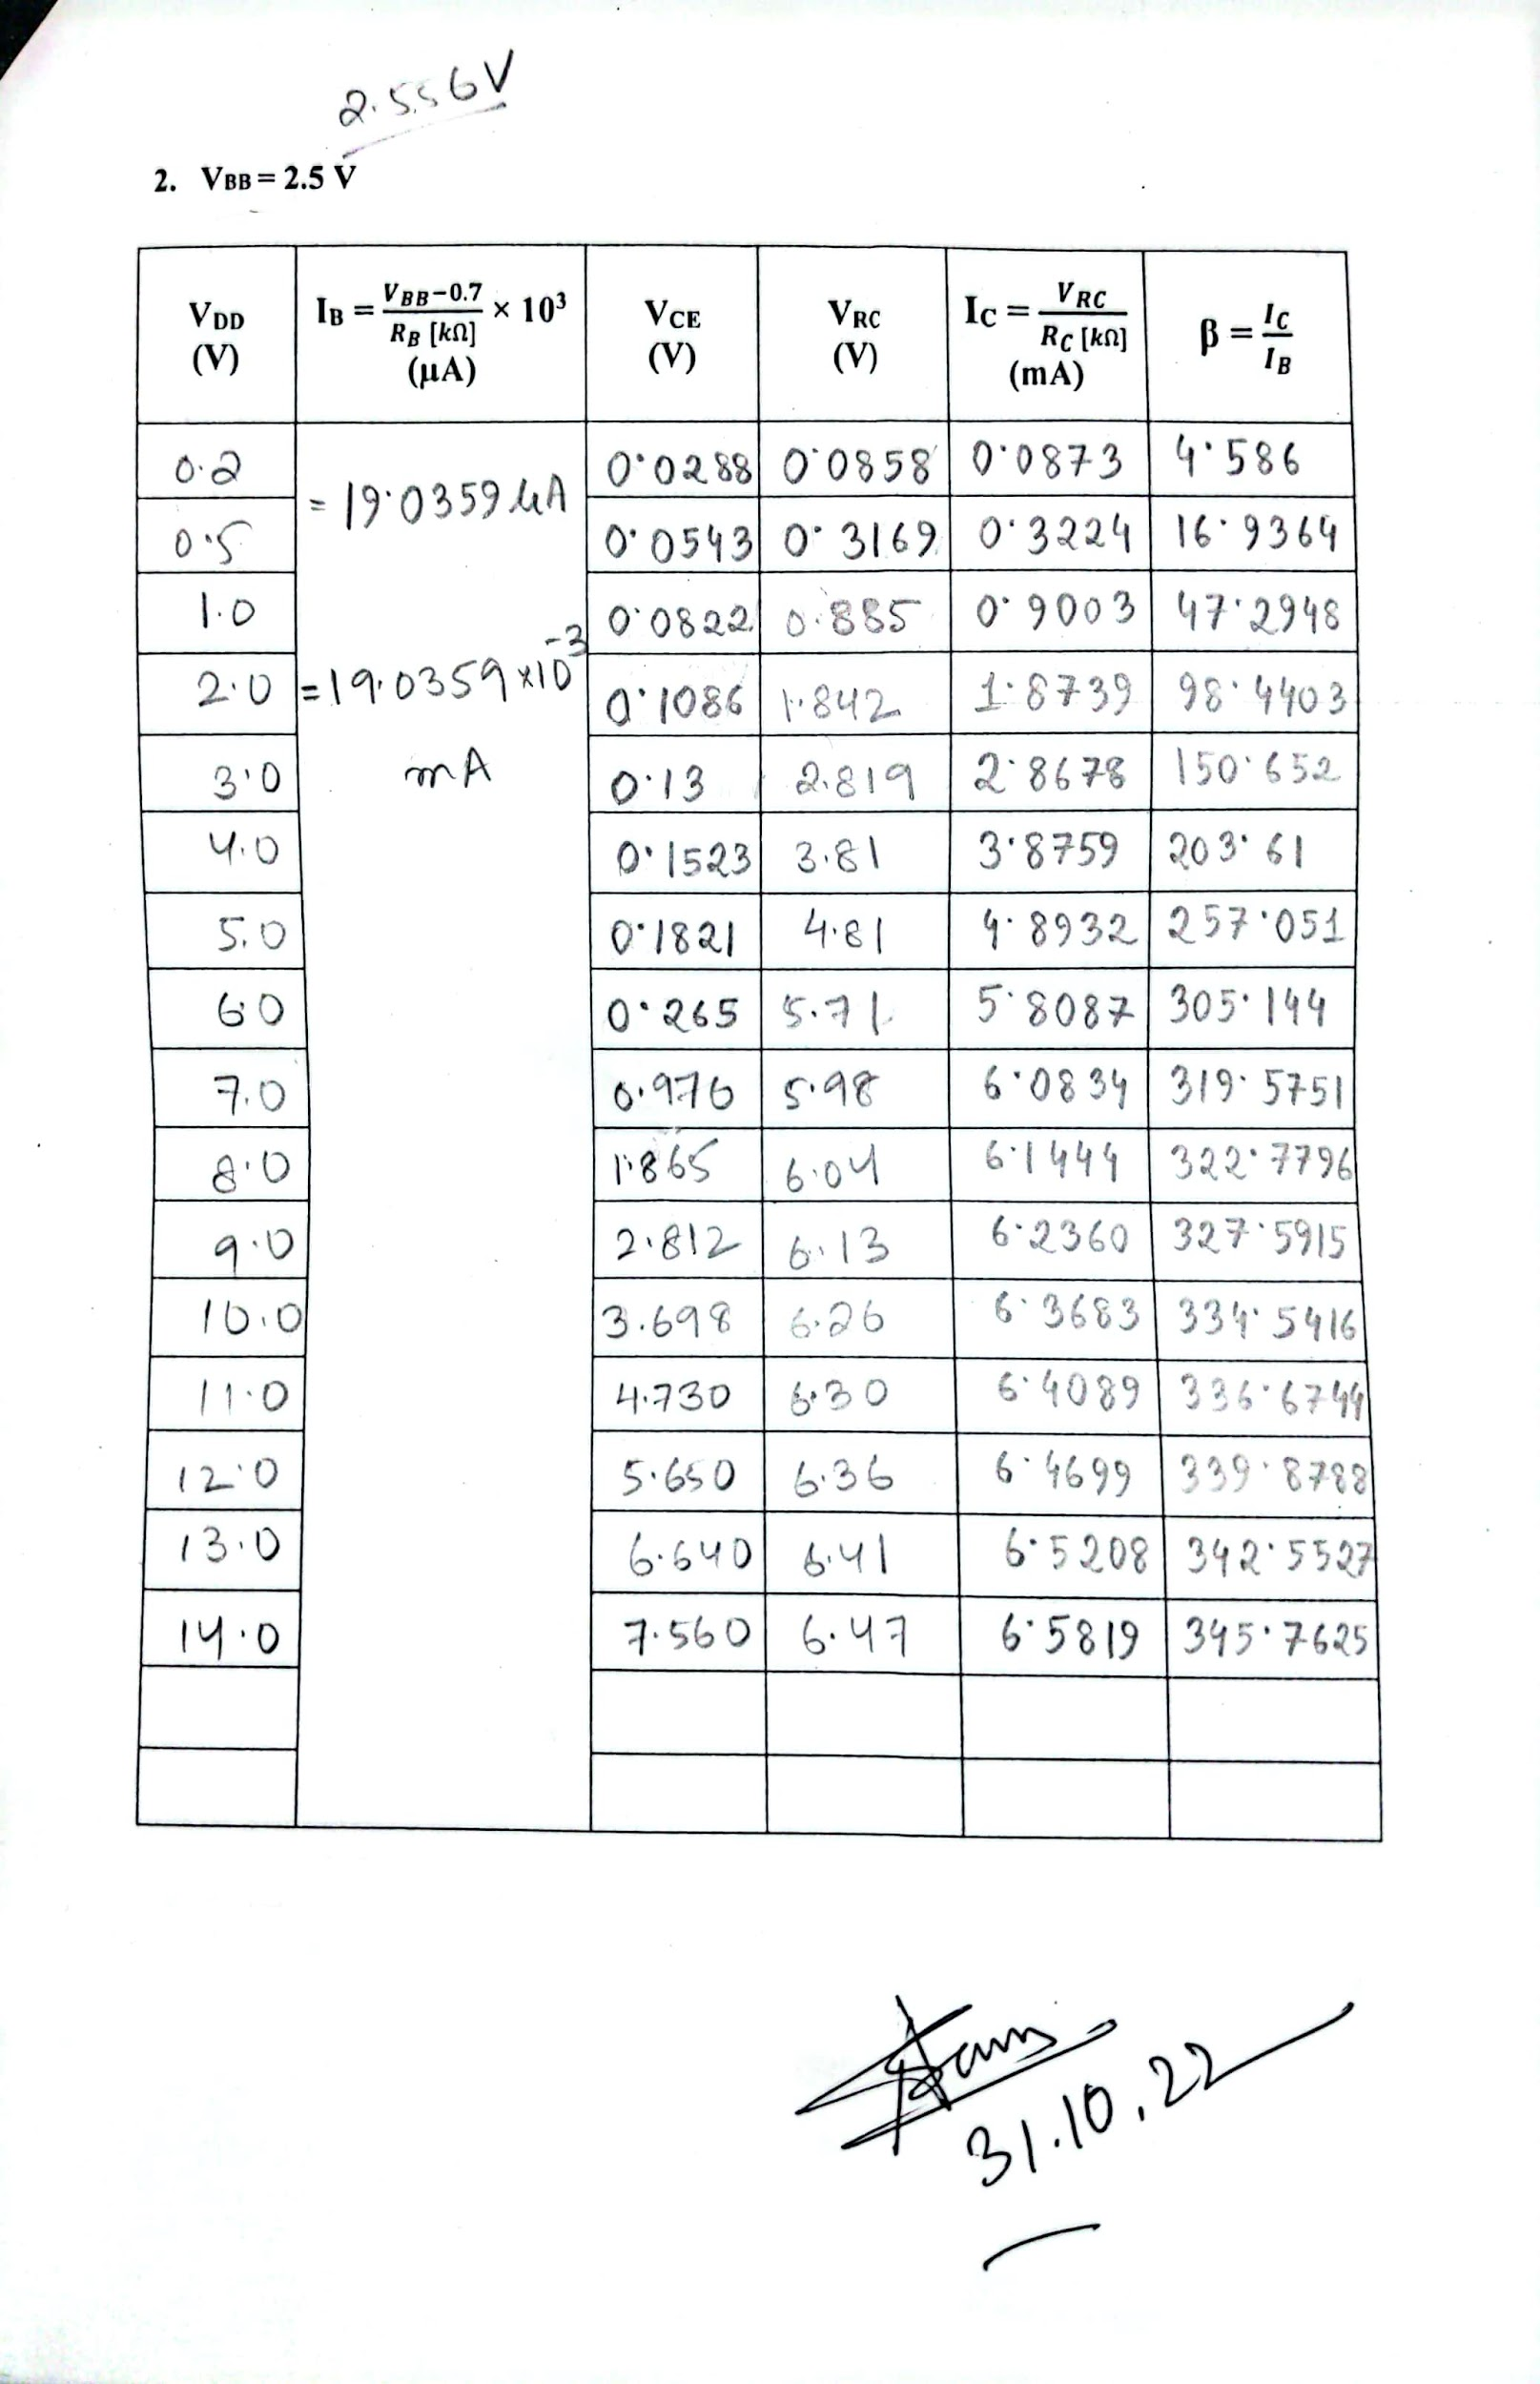 2.556V
2. VBB = 2.5 V
VDD (V) | IB = VBB−0.7 / RB [kΩ] × 10³ (µA) | VCE (V) | VRC (V) | IC = VRC / RC [kΩ] (mA) | β = IC / IB
0.2 | = 19.0359 µA | 0.0288 | 0.0858 | 0.0873 | 4.586
0.5 | 0.0543 | 0.3169 | 0.3224 | 16.9364
1.0 | 0.0822 | 0.885 | 0.9003 | 47.2948
2.0 | = 19.0359 × 10⁻³ | 0.1086 | 1.842 | 1.8739 | 98.4403
3.0 | mA | 0.13 | 2.819 | 2.8678 | 150.652
4.0 | 0.1523 | 3.81 | 3.8759 | 203.61
5.0 | 0.1821 | 4.81 | 4.8932 | 257.051
6.0 | 0.265 | 5.71 | 5.8087 | 305.144
7.0 | 0.976 | 5.98 | 6.0834 | 319.5751
8.0 | 1.865 | 6.04 | 6.1444 | 322.7796
9.0 | 2.812 | 6.13 | 6.2360 | 327.5915
10.0 | 3.698 | 6.26 | 6.3683 | 334.5416
11.0 | 4.730 | 6.30 | 6.4089 | 336.6744
12.0 | 5.650 | 6.36 | 6.4699 | 339.8788
13.0 | 6.640 | 6.41 | 6.5208 | 342.5527
14.0 | 7.560 | 6.47 | 6.5819 | 345.7625
31.10.22